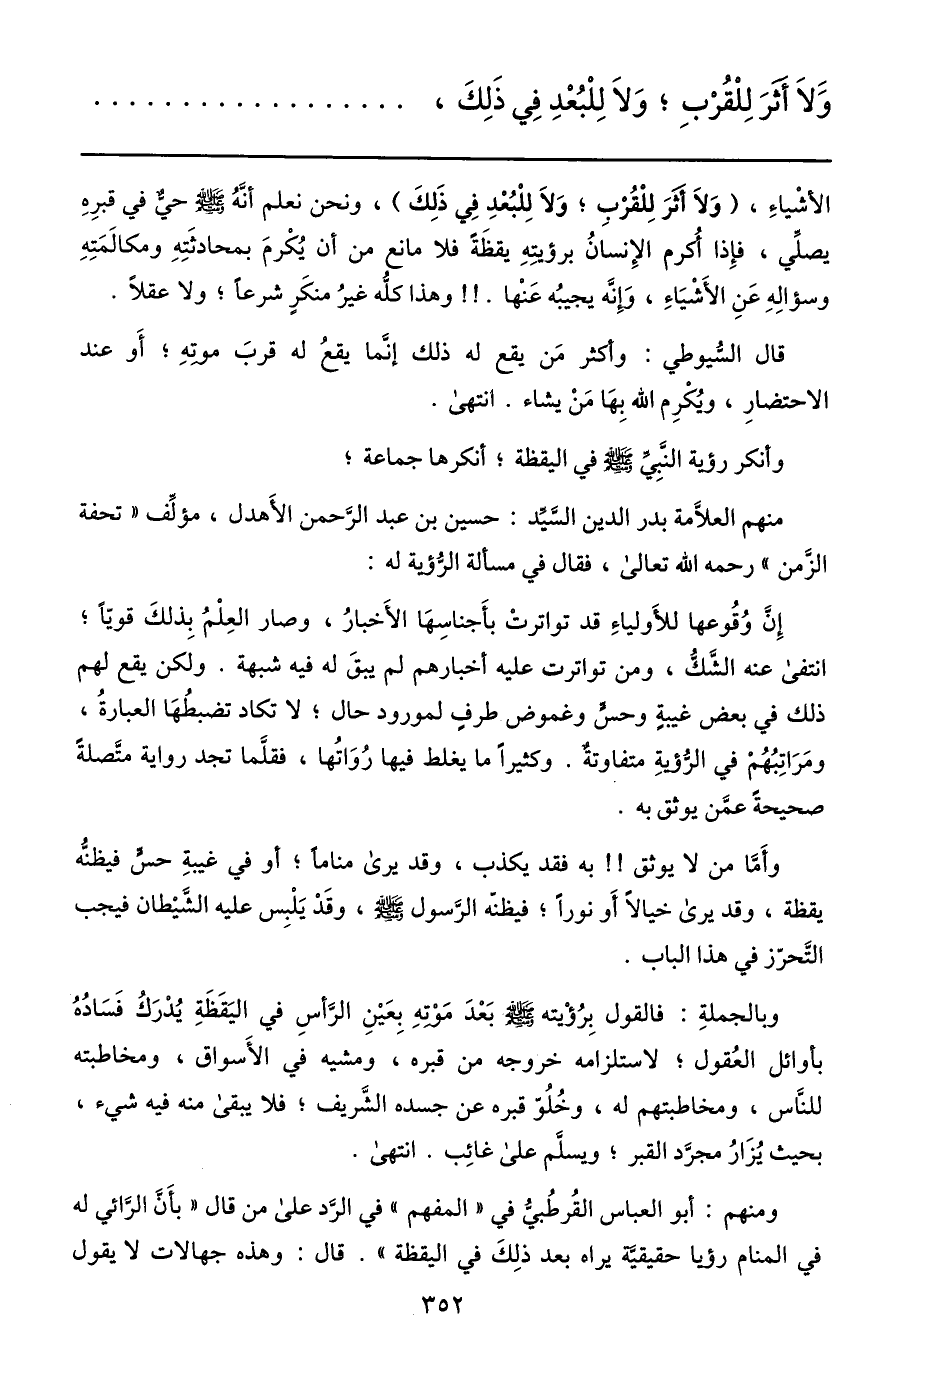 وَلاَ أَثَرَ لِلْقُرْبِ ؛ وَلاَ لِلْبُعْدِ فِي ذَلِكَ ، . . . . . . . . . . . . . . . . . .
الأشْياءِ ، ( وَلاَ أَثَرَ لِلْقُرْبِ ؛ وَلاَ لِلْبُعْدِ فِي ذَلِكَ ) ، ونحن نعلم أنَّهُ ﷺ حيٌّ في قبرِهِ
يصلِّي ، فإِذا أُكرم الإِنسانُ برؤيتِهِ يقظَةً فلا مانع من أن يُكْرمَ بمحادثَتِهِ ومكالَمَتِهِ
وسؤالِهِ عَنِ الأَشْيَاءِ ، وَإِنَّه يجيبُه عَنْها . !! وهذا كلُّه غيرُ منكَرٍ شرعاً ؛ ولا عقلاً .
قال السُّيوطي : وأكثر مَن يقع له ذلك إنَّما يقعُ له قربَ موتِهِ ؛ أَو عند
الاحتضارِ ، ويُكْرِم الله بِهَا مَنْ يشاء . انتهىٰ .
وأنكر رؤية النَّبِيِّ ﷺ في اليقظة ؛ أنكرها جماعة ؛
منهم العلاَّمة بدر الدين السَّيِّد : حسين بن عبد الرَّحمن الأَهدل ، مؤلِّف « تحفة
الزَّمن » رحمه الله تعالىٰ ، فقال في مسألة الرُّؤية له :
إنَّ وُقُوعها للأَولياءِ قد تواترتْ بأَجناسِهَا الأَخبارُ ، وصار العِلْمُ بِذلكَ قويّاً ؛
انتفىٰ عنه الشَّكُّ ، ومن تواترت عليه أخبارهم لم يبقَ له فيه شبهة . ولكن يقع لهم
ذلك في بعض غيبةٍ وحسٍّ وغموض طرفٍ لمورود حال ؛ لا تكاد تضبطُهَا العبارةُ ،
ومَرَاتِبُهُمْ في الرُّؤيةِ متفاوتةٌ . وكثيراً ما يغلط فيها رُوَاتُها ، فقلَّما تجد رواية متَّصلةً
صحيحةً عمَّن يوثق به .
وأَمَّا من لا يوثق !! به فقد يكذب ، وقد يرىٰ مناماً ؛ أو في غيبةِ حسٍّ فيظنُّه
يقظة ، وقد يرىٰ خيالاً أَو نوراً ؛ فيظنّه الرَّسول ﷺ ، وقَدْ يَلْبِس عليه الشَّيْطان فيجب
التَّحرّز في هذا الباب .
وبالجملةِ : فالقول بِرُؤْيته ﷺ بَعْدَ مَوْتِهِ بِعَيْنِ الرَّأسِ في اليَقَظَةِ يُدْرَكُ فَسَادُهُ
بأوائل العُقول ؛ لاستلزامه خروجه من قبره ، ومشيه في الأَسواق ، ومخاطبته
للنَّاس ، ومخاطبتهم له ، وخُلُوّ قبره عن جسده الشَّريف ؛ فلا يبقىٰ منه فيه شيء ،
بحيث يُزَارُ مجرَّد القبر ؛ ويسلَّم علىٰ غائِب . انتهىٰ .
ومنهم : أبو العباس القُرطُبيُّ في « المفهم » في الرَّد علىٰ من قال « بأَنَّ الرَّائي له
في المنام رؤيا حقيقيَّة يراه بعد ذلِكَ في اليقظة » . قال : وهذه جهالات لا يقول
٣٥٢